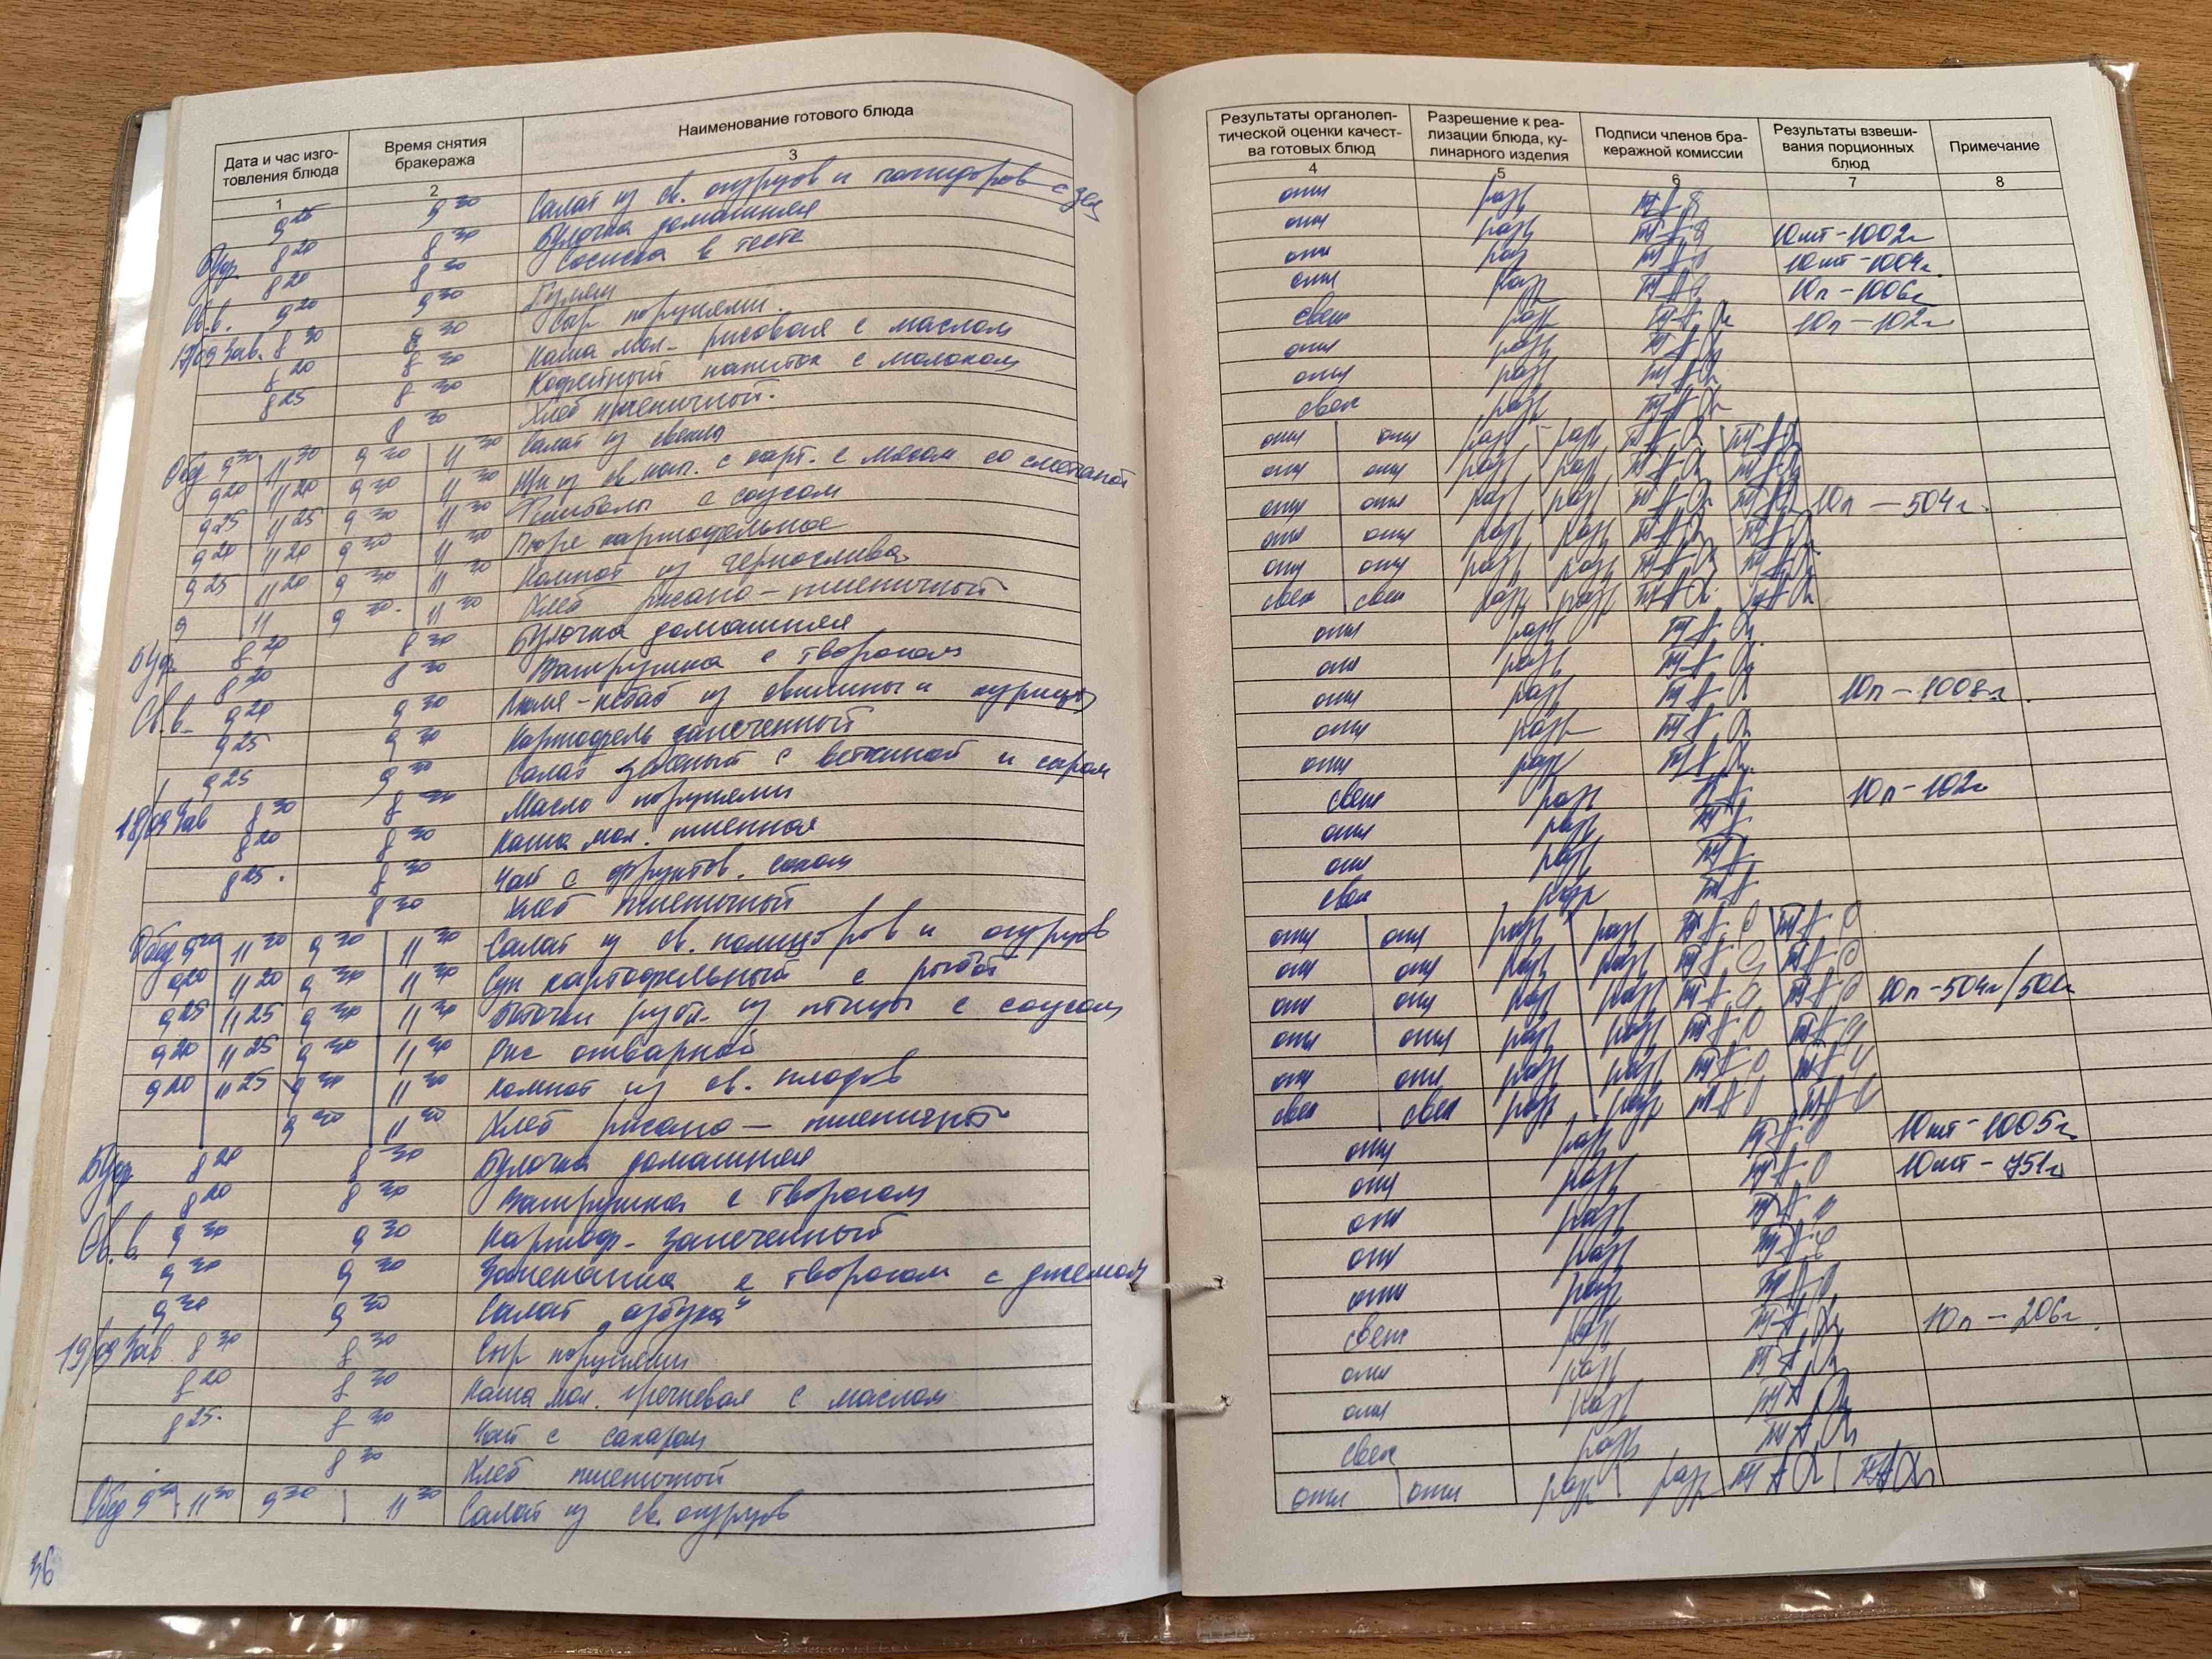 Дата и час изго-
товления блюда
Время снятия
бракеража
Наименование готового блюда
1
2
3
9 25 9 30 Салат из св. огурцов и помидоров с зел
Буф. 8 20 8 30 Булочка домашняя
8 20 8 30 Сосиска в тесте
Св. в. 9 20 9 30
17/09 Зав. 8 30 8 30 Сыр порциями.
8 20 8 30 Каша мол. рисовая с маслом
8 25 8 30 Кофейный напиток с молоком
8 30 Хлеб пшеничный.
Обед 9 30 11 30 9 30 11 30 Салат из свеклы
9 20 11 20 9 30 11 30 Щи из св. кап. с карт. с мясом со сметаной
9 25 11 25 9 30 11 30 с соусом
9 20 11 20 9 30 11 30 Пюре картофельное
9 25 11 20 9 30 11 30 Компот из чернослива
9 11 9 30 11 30 Хлеб ржано-пшеничный
Буф 8 20 8 30 Булочка домашняя
8 20 8 30 Ватрушка с творогом
Св. в. 9 20 9 30 Люля-кебаб из свинины и курицы
9 25 9 30 Картофель запеченный
9 25 9 30 Салат с ветчиной и сыром
18/09 Зав 8 30 8 30 Масло порциями
8 20 8 30 Каша мол. пшенная
8 25. 8 30 Чай с фруктов. соком
8 30 Хлеб пшеничный
Обед 9 20 11 20 9 30 11 30 Салат из св. помидоров и огурцов
9 20 11 20 9 30 11 30 Суп картофельный с рыбой
9 25 11 25 9 30 11 30 Биточки рубл. из птицы с соусом
9 20 11 25 9 30 11 30 Рис отварной
9 20 11 25 9 30 11 30 Компот из св. плодов
9 30 11 30 Хлеб ржано-пшеничный
Буф 8 20 8 30 Булочка домашняя
8 20 8 30 Ватрушка с творогом
Св. в. 9 30 9 30 Картоф. запеченный
9 30 9 30 Запеканка с творогом с джемом
9 30 9 30 Салат „азбука"
19/09 Зав 8 30 8 30 Сыр порциями
8 20 8 30 Каша мол. гречневая с маслом
8 25. 8 30 Чай с сахаром
8 30 Хлеб пшеничный
Обед 9 30 11 30 9 30 11 30 Салат из св. огурцов
36
Результаты органолеп-
тической оценки качест-
ва готовых блюд
Разрешение к реа-
лизации блюда, ку-
линарного изделия
Подписи членов бра-
керажной комиссии
Результаты взвеши-
вания порционных
блюд
Примечание
4
5
6
7
8
отл разр
отл разр 10шт-1002г
отл разр 10шт-1004г.
отл разр 10п-1006г
свеж разр 10п-102г
отл разр
отл разр
свеж разр
отл отл разр разр
отл отл разр разр
отл отл разр разр 10п-504г.
отл отл разр разр
отл отл разр разр
свеж свеж разр разр
отл разр
отл разр
отл разр 10п-1008г.
отл разр
отл разр
свеж разр 10п-102г
отл разр
отл разр
свеж разр
отл отл разр разр
отл отл разр разр
отл отл разр разр 10п-504г/501г
отл отл разр разр
отл отл разр разр
свеж свеж разр разр
отл разр 10шт-1005г.
отл разр 10шт-751г
отл разр
отл разр
отл разр
свеж разр 10п-206г.
отл разр
отл разр
свеж разр
отл отл разр разр